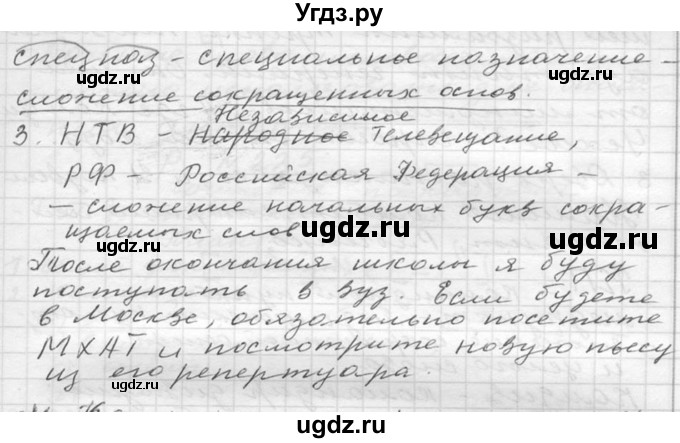 Угдз.ру
спецназ - специальное назначение -
сложение сокращенных основ.
Независимое
3. НТВ - Народное Телевещание,
РФ - Российская Федерация -
- сложение начальных букв сокра-
щаемых слов
После окончания школы я буду
поступать в вуз. Если будете
в Москве, обязательно посетите
МХАТ и посмотрите новую пьесу
из его репертуара.
ugdz.ru
ugdz.ru
ugdz.ru
ugdz.ru
ugdz.ru
ugdz.ru
ugdz.ru
ugdz.ru
ugdz.ru
ugdz.ru
ugdz.ru
ugdz.ru
ugdz.ru